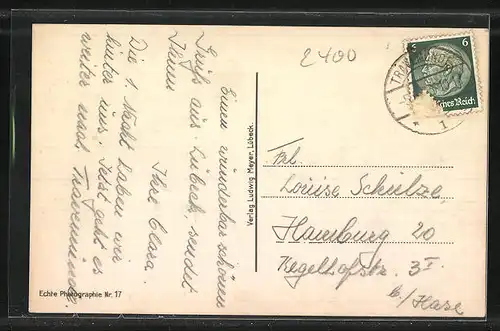 2400
Einen wunderbar schönen
Gruß aus Lübeck sendet
Ihnen
Ihre Clara.
Die 1. Nacht haben wir
hinter uns. Jetzt geht es
weiter nach Travemünde.
Echte Photographie Nr. 17
Verlag Ludwig Meyer, Lübeck.
6
ches Reich
TRAVEMÜNDE
* 1
Frl.
Louise Schultze,
Hamburg 20
Kegelhofstr. 3 I
b/Hase